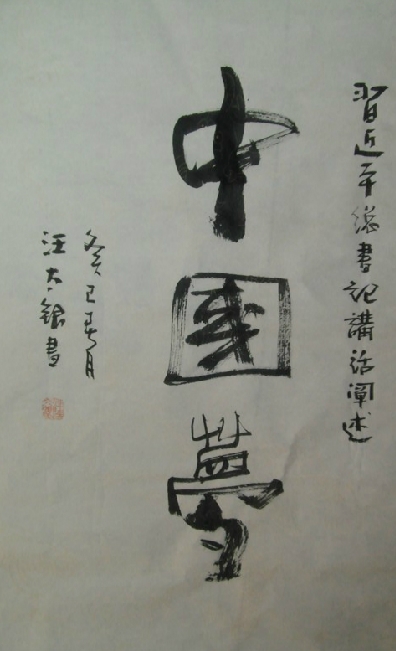 習近平總書記講話闡述
中國夢
癸巳春月
汪大銀書